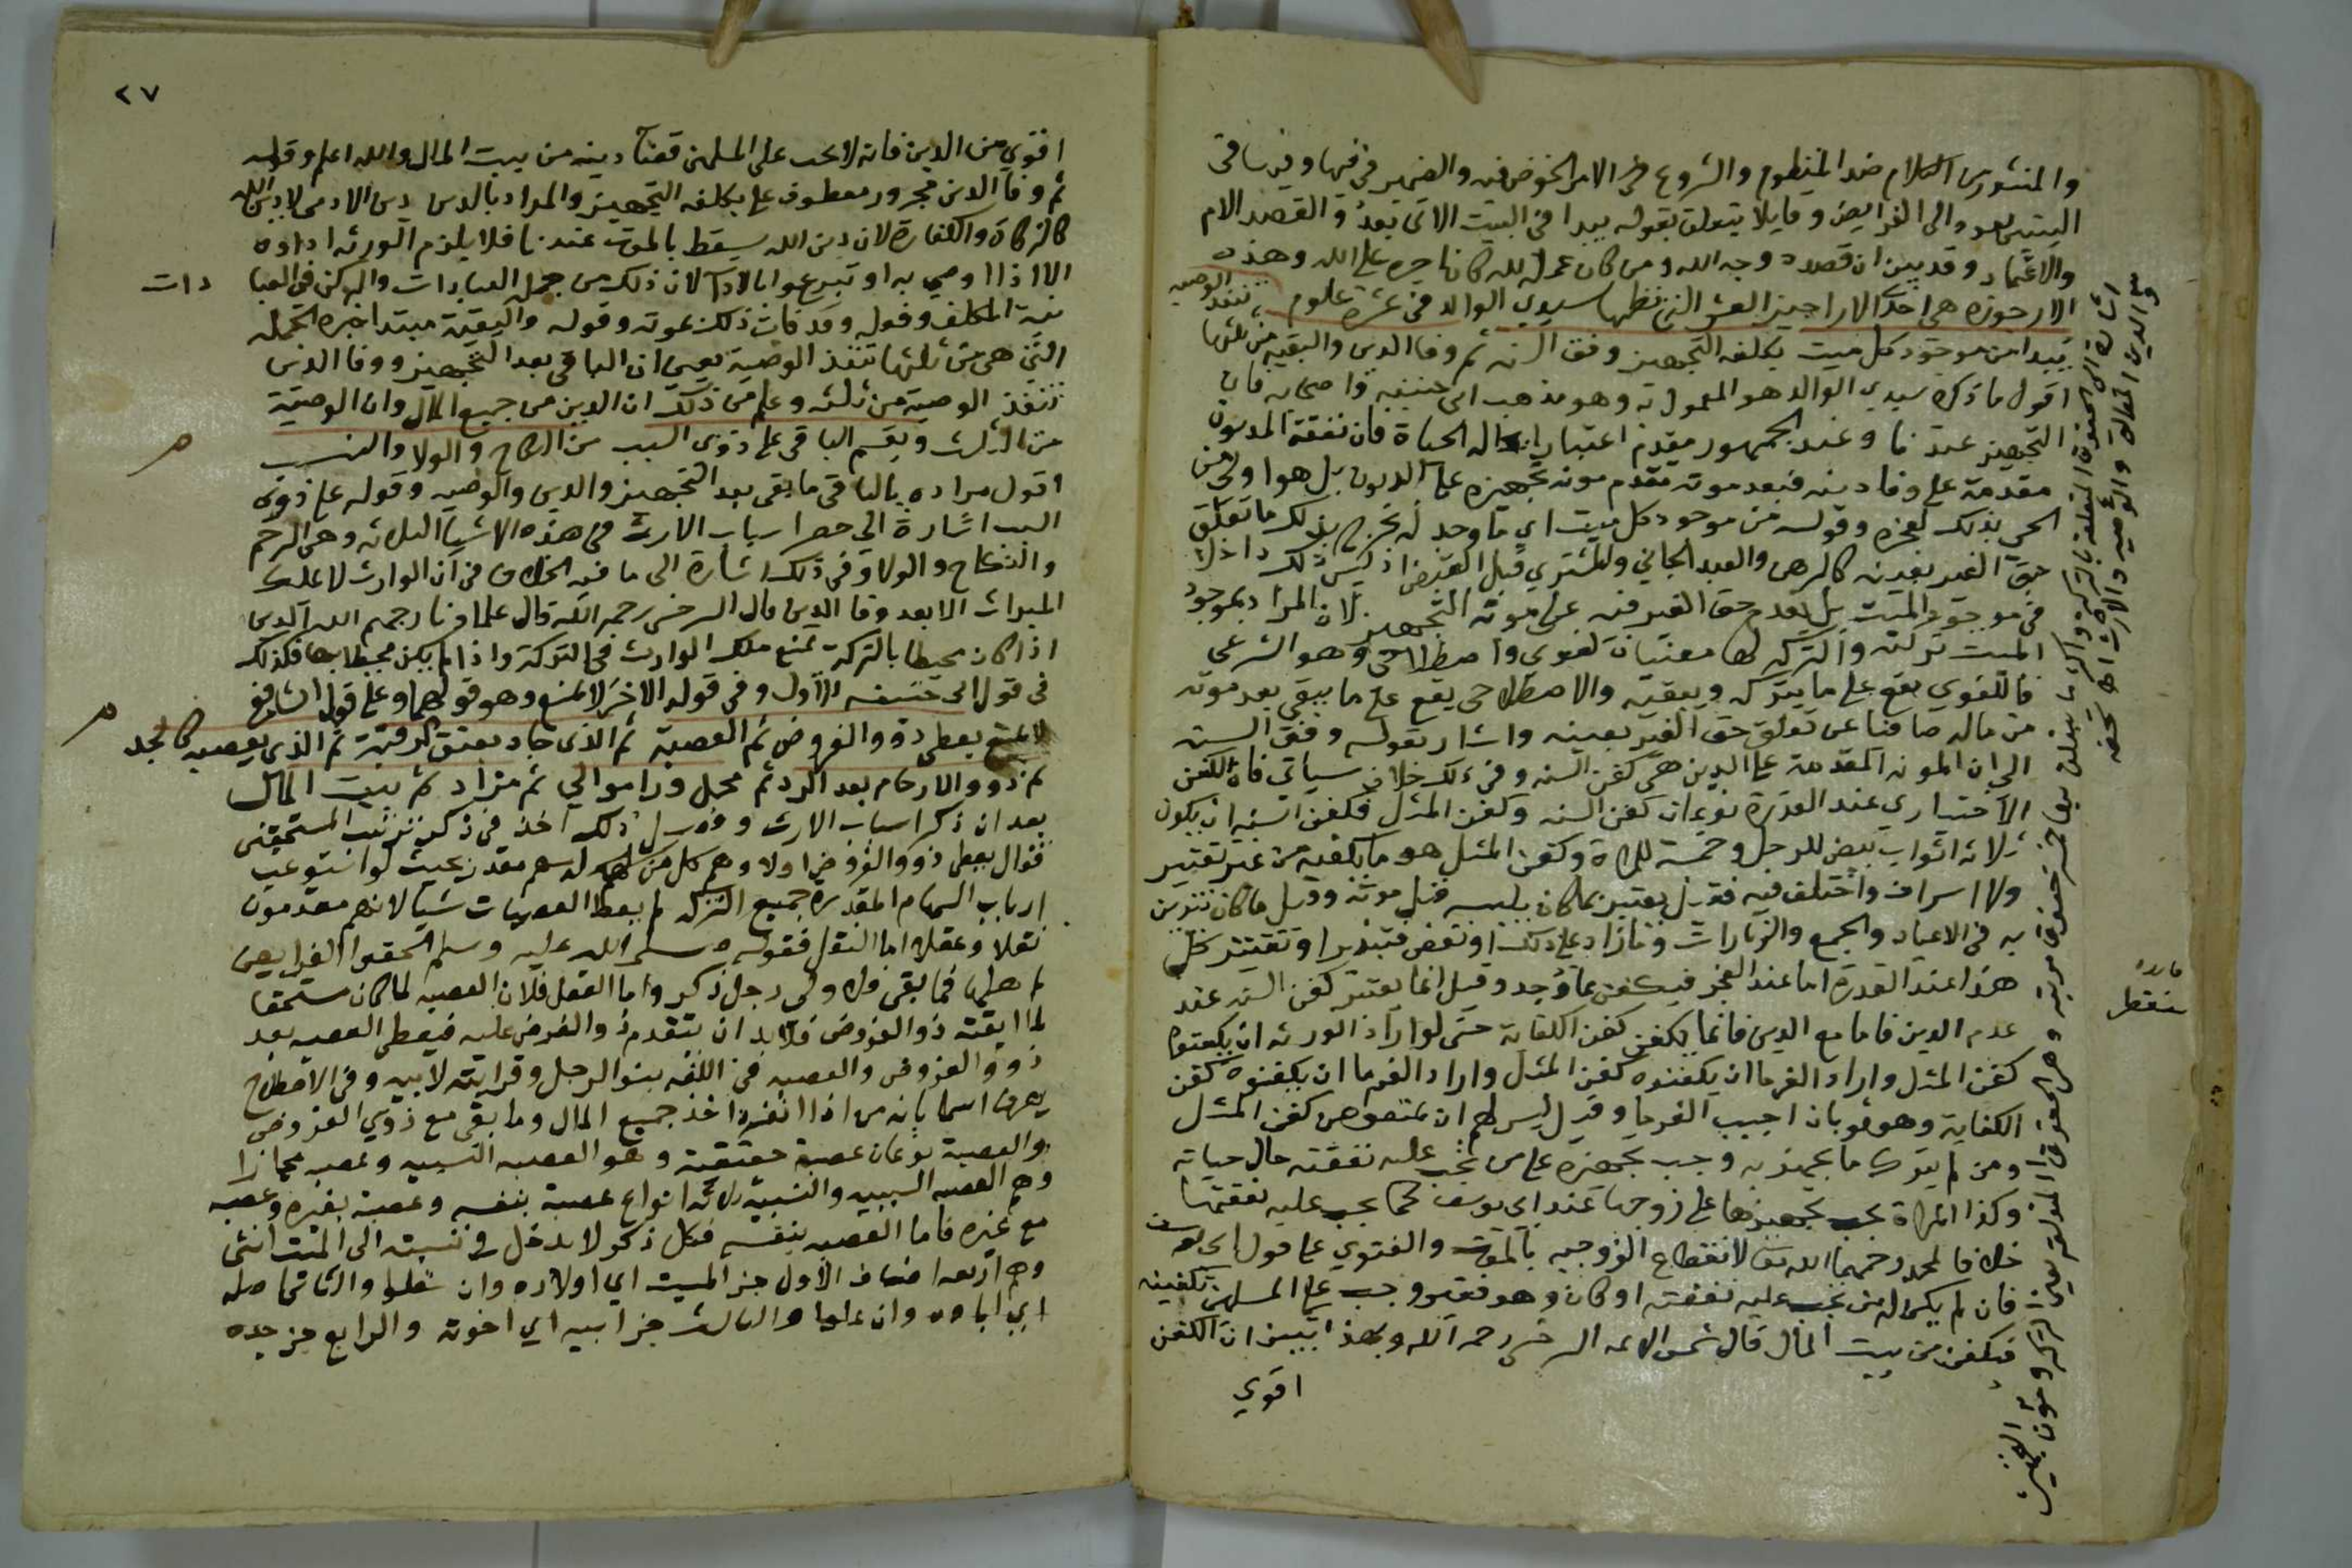 والمنثور من الكلام ضد المنظوم والشروع في الامر الخوض فيه والضمير في فيها وفي ساقى
البيتين يعود الى الفرايض وقايلا يتعلق بقوله يبدا في البيت الاتي بعد والقصد الام
والاعتماد وقد بين ان قصده وجه الله ومن كان عمله لله كان اجره على الله وهذه
الارجوزه هي احد الاراجيز العشر التي نظمها سيدي الوالد في عشرة علوم
يبدا من موجود كل ميت بكلفه التجهيز وفق السنه ثم وفا الدين والبقيه من ثلثها
تنفذ الوصيه
اقول ما ذكره سيدي الوالد هو المعمول به وهو مذهب ابي حنيفه واصحابه فان
التجهيز عندنا وعند الجمهور مقدم اعتبارا بحاله الحياة فان نفقة المديون
مقدمة على وفا دينه فبعد موته تقدم مونه تجهيزه على الديون بل هو اولى من
الحي بذلك لعجزه وقوله من موجود كل ميت اي ما وجد له يخرج بذلك ما تعلق
حق الغير بعينه كالرهن والعبد الجاني والمشتري قبل القبض اذ ليس ذلك داخلا
في موجود الميت بل يقدم حق الغير فيه على مونة التجهيز لان المراد بموجود
الميت تركته والتركه لها معنيان لغوي واصطلاحي وهو الشرعي
فاللغوي يقع على ما يتركه ويبقيه والاصطلاحي يقع على ما يبقى بعد موته
من ماله صافيا عن تعلق حق الغير بعينه واشار بقوله وفق السنه
الى ان المونه المقدمة على الدين هي كفن السنه وفي ذلك خلاف سياتي فان الكفن
الاختياري عند القدرة نوعان كفن السنه وكفن المثل فكفن السنه ان يكون
ثلاثه اثواب بيض للرجل وخمسة للمراة وكفن المثل هو ما يكفيه من غير تقتير
ولا اسراف واختلف فيه فقيل يعتبر بما كان يلبسه قبل موته وقيل ما كان يتزين
به في الاعياد والجمع والزيارات وما زاد على ذلك او نقص فتبذير او تقتير كل
هذا عند القدرة اما عند العجز فيكفن بما وجد وقيل انما يعتبر كفن السنه عند
عدم الدين فاما مع الدين فانما يكفن كفن الكفاية حتى لو اراد الورثه ان يكفنوه
كفن المثل واراد الغرما ان يكفنوه كفن المثل واراد الغرما ان يكفنوه كفن
الكفاية وهو ثوبان اجيب الغرما وقيل ليس لهم ان ينقصوه من كفن المثل
ومن لم يترك ما يجهز به وجب تجهيزه على من تجب عليه نفقته حال حياته
وكذا المراة يجب تجهيزها على زوجها عند ابي يوسف كما يجب عليه نفقتها
خلافا لمحمد رحمهما الله تعالى لانقطاع الزوجيه بالموت والفتوي على قول ابي يوسف
فان لم يكن له من تجب عليه نفقته او كان وهو فقير وجب على المسلمين تكفينه
فيكفن من بيت المال قال شمس الايمه السرخسي رحمه الله وبهذا تبين ان الكفن
اقوي
فايده
٢٧
اقوي من الدين فانه لا يجب على المسلمين قضا دينه من بيت المال والله اعلم وقوله
ثم وفا الدين مجرور معطوف على بكلفه التجهيز والمراد بالدين دين الادمي لا دين الله
كالزكاة والكفارة لان دين الله يسقط بالموت عندنا فلا يلزم الورثه اداوه
الا اذا اوصي به او تبرعوا بالادا لان ذلك من جملة العبادات والركن في العبا
دات
نية المكلف وفعله وقد فات ذلك بموته وقوله والبقية مبتدا خبره الجمله
التي هي من ثلثها تنفذ الوصية يعني ان الباقي بعد التجهيز ووفا الدين
تنفذ الوصية من ثلثه وعلم من ذلك ان الدين من جميع المال وان الوصية
من الثلث ويقسم الباقي على ذوى السبب من النكاح والولا والنسب
م
اقول مراده بالباقي ما بقي بعد التجهيز والدين والوصيه وقوله على ذوى
السبب اشارة الي حصر اسباب الارث في هذه الاشيا الثلاثه وهي الرحم
والنكاح والولا وفي ذلك اشارة الى ما فيه الخلاف من ان الوارث لا يملك
الميراث الا بعد وفا الدين قال السرخسي رحمه الله قال علماؤنا رحمهم الله الدين
اذا كان محيطا بالتركة يمنع ملك الوارث في التركة واذا لم يكن محيطا بها فكذلك
في قول ابي حنيفه الاول وفي قوله الاخر لا يمنع وهو قولهما وعلى قول الشافعي
لا يمنع يعطي ذوو الفروض ثم العصبة ثم الذى جاد بعتق الرقبة ثم الذى يعصبه كالجد
م
ثم ذوو الارحام بعد الرد ثم محمل ورا موالي ثم مزاد ثم بيت المال
بعد ان ذكر اسباب الارث وفصل ذلك اخذ في ذكر ترتيب المستحقين
فقال يعطى ذوو الفروض اولا وهم كل من له سهم مقدر بحيث لو استوعب
ارباب السهام المقدرة جميع التركه لم يعط العصبات شيا لانهم مقدمون
نقلا وعقلا اما النقل فقوله صلى الله عليه وسلم الحقوا الفرايض
باهلها فما بقى فلاولى رجل ذكر واما العقل فلان العصبه لما كان مستحقا
لما ابقته ذوو الفروض فلا بد ان تتقدم ذوو الفرض عليه فيعطى العصبه بعد
ذوو الفروض والعصبه في اللغه بنو الرجل وقرابته لابيه وفي الاصطلاح
يعرف اسما بانه من اذا انفرد اخذ جميع المال وما بقى مع ذوي الفروض
والعصبة نوعان عصبة حقيقية وهو العصبه النسبيه وعصبه مجازا
وهم العصبه السببيه والنسبية ثلاثه انواع عصبة بنفسه وعصبة بغيره وعصبه
مع غيره فاما العصبه بنفسه فكل ذكر لا يدخل في نسبته الى الميت انثى
وهم اربعه اصناف الاول جز الميت اي اولاده وان سفلوا والثاني اصله
اي اباوه وان علوا والثالث جز ابيه اي اخوته والرابع جز جده